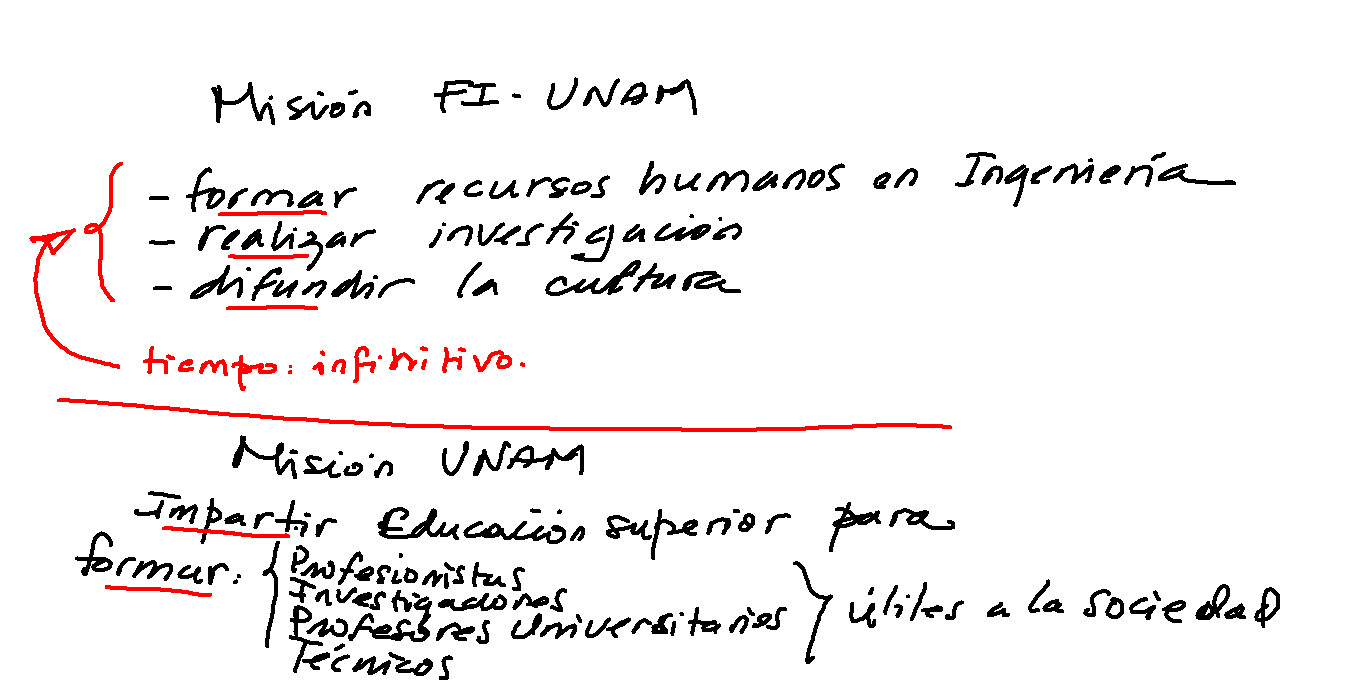 Misión FI - UNAM
- formar recursos humanos en Ingeniería
- realizar investigación
- difundir la cultura
tiempo: infinitivo.
Misión UNAM
Impartir Educación superior para
formar: { Profesionistas
Investigadores
Profesores Universitarios } útiles a la sociedad
Técnicos